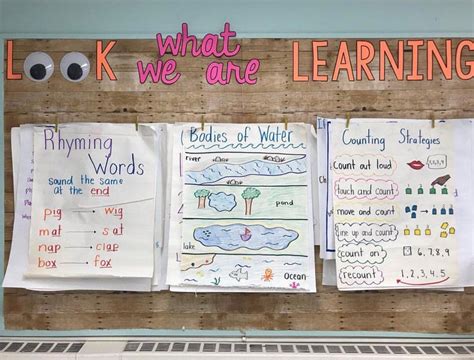 LOOK what we are LEARNING
Rhyming
Words
Sound the same
at the end
pig → wig
mat → sat
nap → clap
box → fox
Bodies of Water
river
pond
lake
Ocean
Counting Strategies
count out loud
1,2,3,4
touch and count
move and count
line up and count
count on
6,7,8,9
recount
1,2,3,4,5